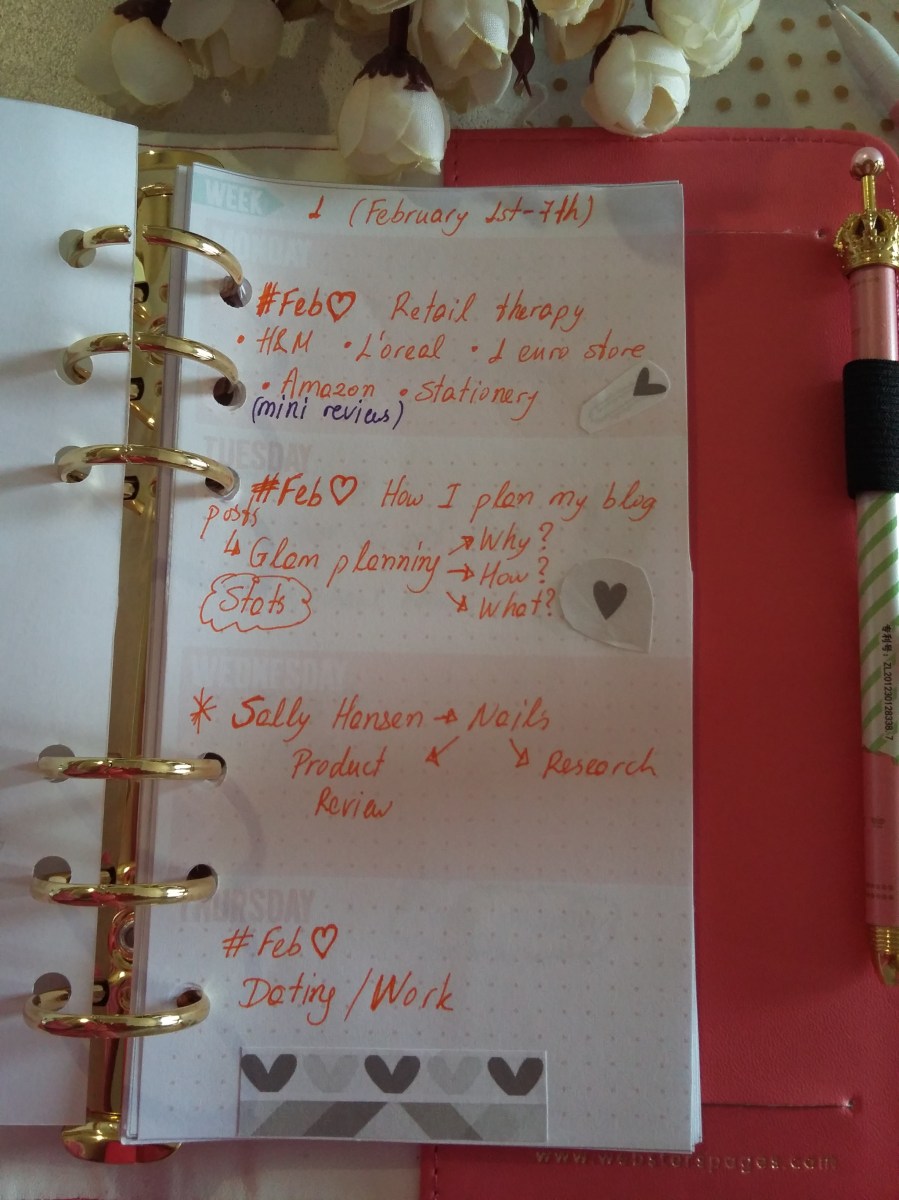 WEEK 1 (February 1st-7th)
MONDAY
#Feb♡ Retail therapy
• H&M • L'oreal • 1 euro store
• Amazon • Stationery
(mini reviews)
TUESDAY
#Feb♡ How I plan my blog
posts
↳ Glam planning → Why?
→ How?
→ What?
Stats
WEDNESDAY
* Sally Hansen → Nails
Product ↙ ↘ Research
Review
THURSDAY
#Feb♡
Dating / Work
www.websterspages.com
专利号: ZL201230128338.7